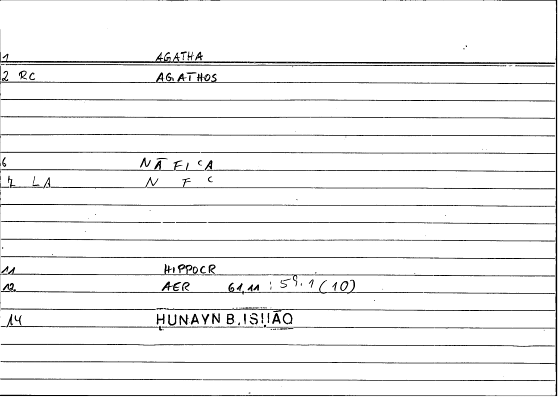 1 AGATHA
2 RC AGATHOS
6 NĀFIʿA
7 LA N F ʿ
11 HIPPOCR
12 AER 61,11 : 59.1 (10)
14 ḤUNAYN B. ISḤĀQ